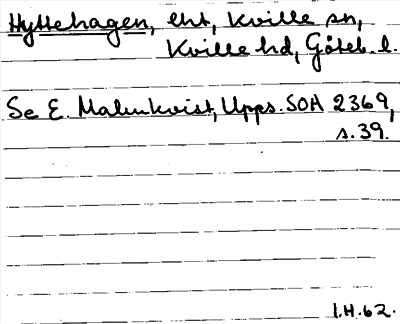 Hyttehagen, lht, Kville sn,
Kville hd, Göteb. l.
Se E. Malmkvist, Upps. SOA 2369,
s. 39.
I.H. 62.